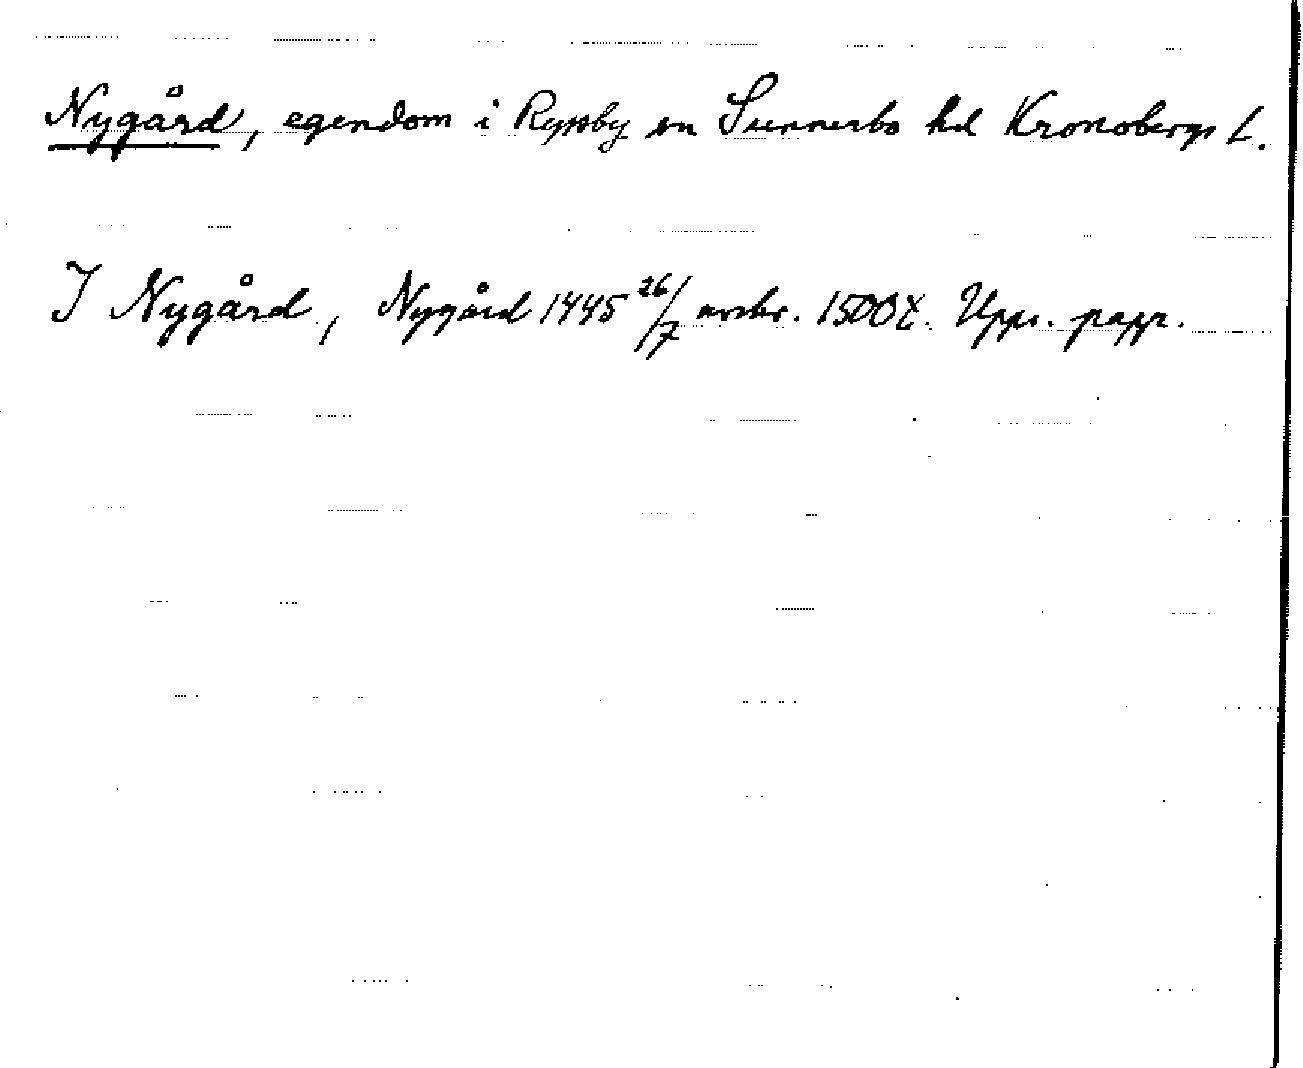 Nygård, egendom i Ryssby sn Sunnerbo hd Kronobergs L.
I Nygård, Nygård 1445 26/7 avskr. 1500t. Upps. papr.